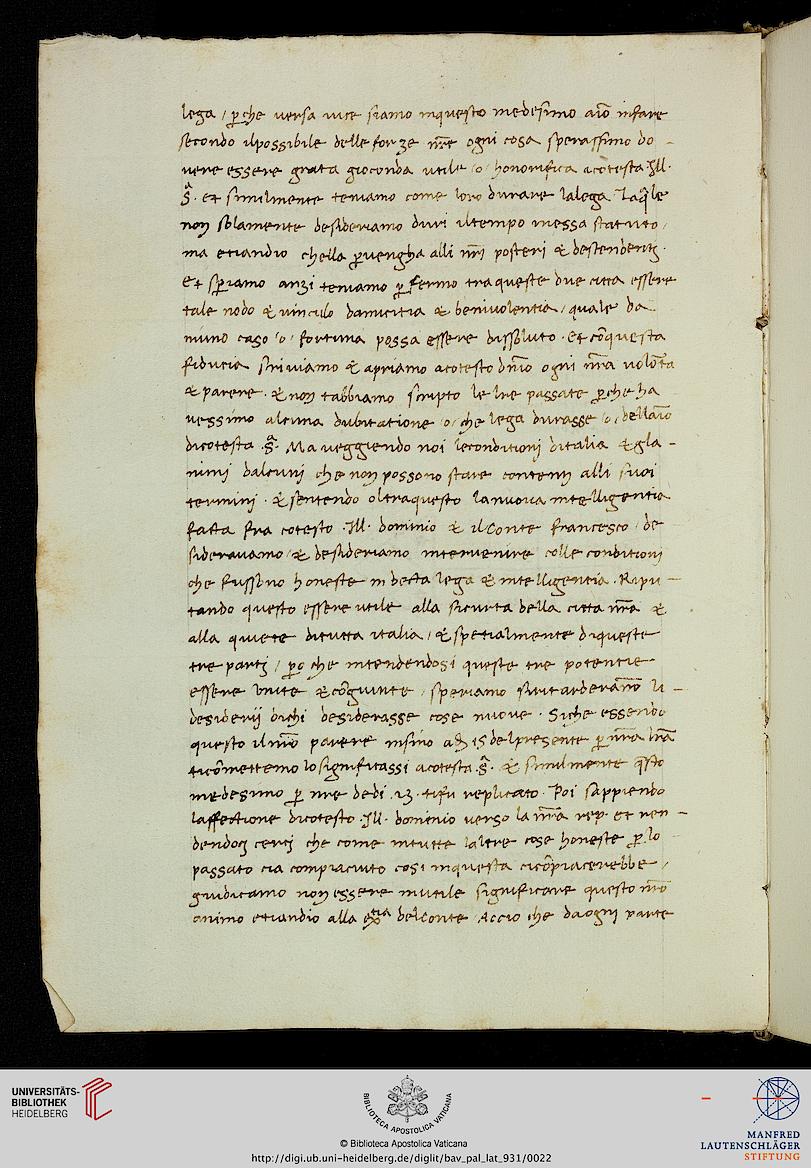 lega / ꝑche uersa uice siamo inquesto medesimo aĩo infare
secondo ilpossibile delle forze nr̃e ogni cosa sperassimo do -
uere essere grata gioconda utile /o/ honorifica acotesta Ill.
S. et similmente teniamo come loro durare lalega. Laq̃le
non solamente desideriamo duri iltempo inessa statuto /
ma etiandio chella ꝑuengha alli nr̃i posteri & descendentj.
Et speriamo anzi teniamo ꝑ fermo traqueste due citta essere
tale nodo & uinculo damicitia & beniuolentia / quale da
niuno caso /o/ fortuna possa essere dissoluto. Et cõquesta
fiducia scriuiamo & apriamo acotesto dñio ogni nr̃a uolõta
& parere. & non tabbiamo scripto le lr̃e passate ꝑche ha
uessimo alcuna dubitatione /o/ che lega durasse /o/ dellaĩo
dicotesta .S. Ma ueggiendo noi leconditionj ditalia & gla -
nimi dalcuni che non possono stare contenti alli suoi
termini. & sentendo oltraquesto lanuoua intelligentia
facta fra cotesto .Ill. dominio & ilconte francesco / de
siderauamo / & desideriamo interuenire colle conditioni
che fussono honeste in decta lega & intelligentia. Ripu -
tando questo essere utile alla sicurta della citta nr̃a &
alla quiete ditutta italia / & spetialmente diqueste
tre partj / ꝑo che intendendosi queste tre potentie
essere unite & cõgiunte / speriamo siritarderanno li -
desiderij dichi desiderasse cose nuoue. Siche essendo
questo ilnr̃o parere insino adj 15 delpresente ꝑ nr̃a lr̃a
ticõmettemo losignificassi acotesta .S. & similmente q̃sto
medesimo ꝑ nr̃e dedi .23. tifu replicato. Poi sappiendo
laffectione dicotesto .Ill. dominio uerso la nr̃a rep. et ren -
dendocj certj che come intutte laltre cose honeste ꝑ lo
passato cia compiaciuto cosi inquesta cicõpiacerebbe /
giudicamo non essere inutile significare questo nr̃o
animo etiandio alla ex.tia delconte. Accio che daogni parte
UNIVERSITÄTS-
BIBLIOTHEK
HEIDELBERG
BIBLIOTHECA APOSTOLICA VATICANA
© Biblioteca Apostolica Vaticana
http://digi.ub.uni-heidelberg.de/diglit/bav_pal_lat_931/0022
MANFRED
LAUTENSCHLÄGER
STIFTUNG